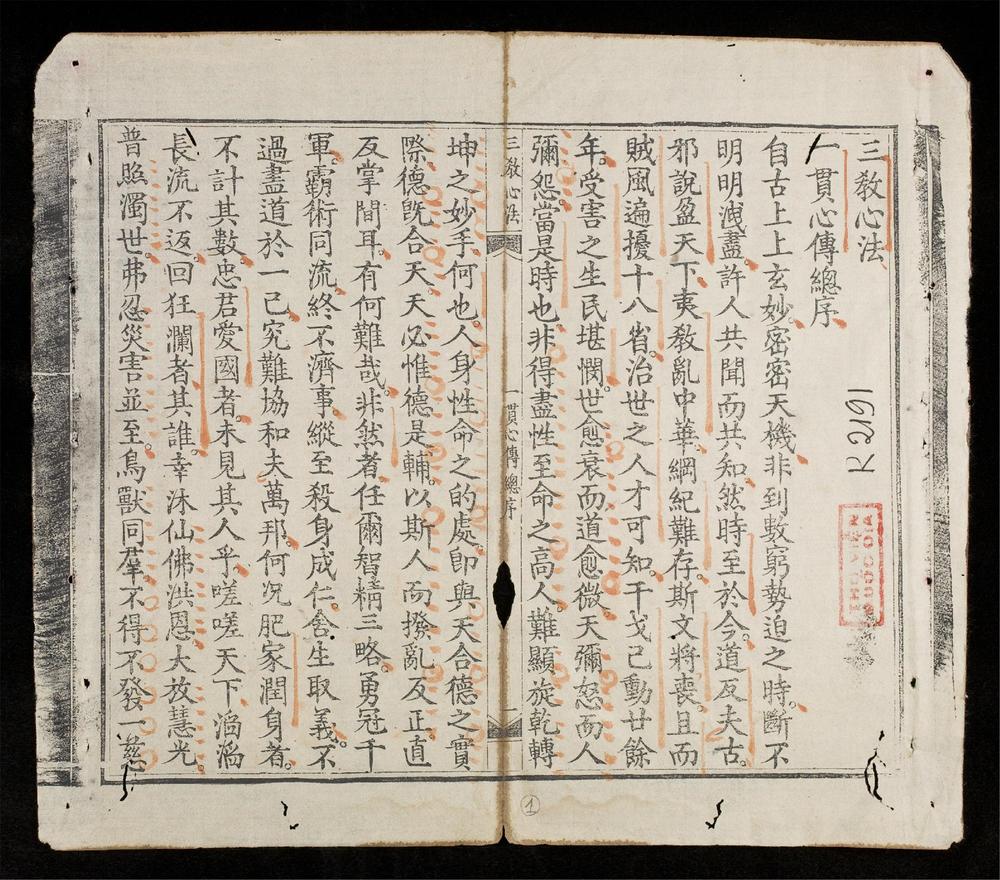 三教心法
一貫心傳總序
自古上上玄妙密密天機非到數窮勢迫之時斷不
明明洩盡許人共聞而共知然時至於今道反夫古
邪說盈天下夷教亂中華綱紀難存斯文將喪且而
賊風遍擾十八省治世之人才可知干戈已動廿餘
年受害之生民堪憫世愈衰而道愈微天彌怒而人
彌怨當是時也非得盡性至命之高人難顯旋乾轉
三教心法 一貫心傳總序 一
坤之妙手何也人身性命之的處即與天合德之實
際德既合天天必惟德是輔以斯人而撥亂反正直
反掌間耳有何難哉非然者任爾智精三略勇冠千
軍霸術同流終不濟事縱至殺身成仁舍生取義不
過盡道於一己究難協和夫萬邦何況肥家潤身者
不計其數忠君愛國者未見其人乎嗟嗟天下滔滔
長流不返回狂瀾者其誰幸沐仙佛洪恩大放慧光
普照濁世弗忍災害並至鳥獸同羣不得不發一慈
R 2191
THƯ VIỆN
1